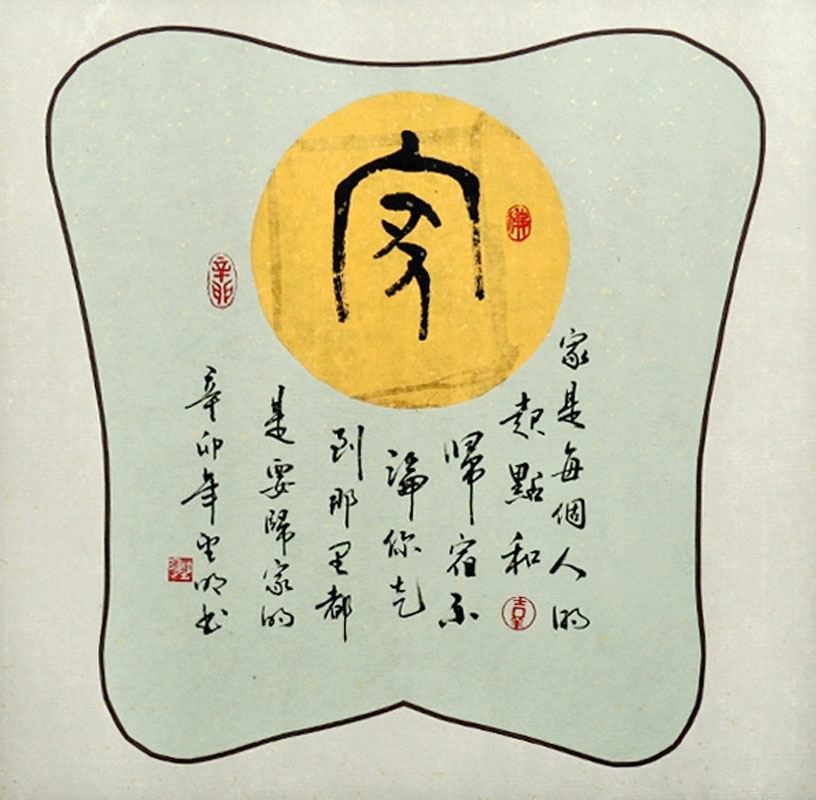 家
家是每個人的
起點和
歸宿不
論你走
到那里都
是要歸家的
辛卯年聖明书
辛卯